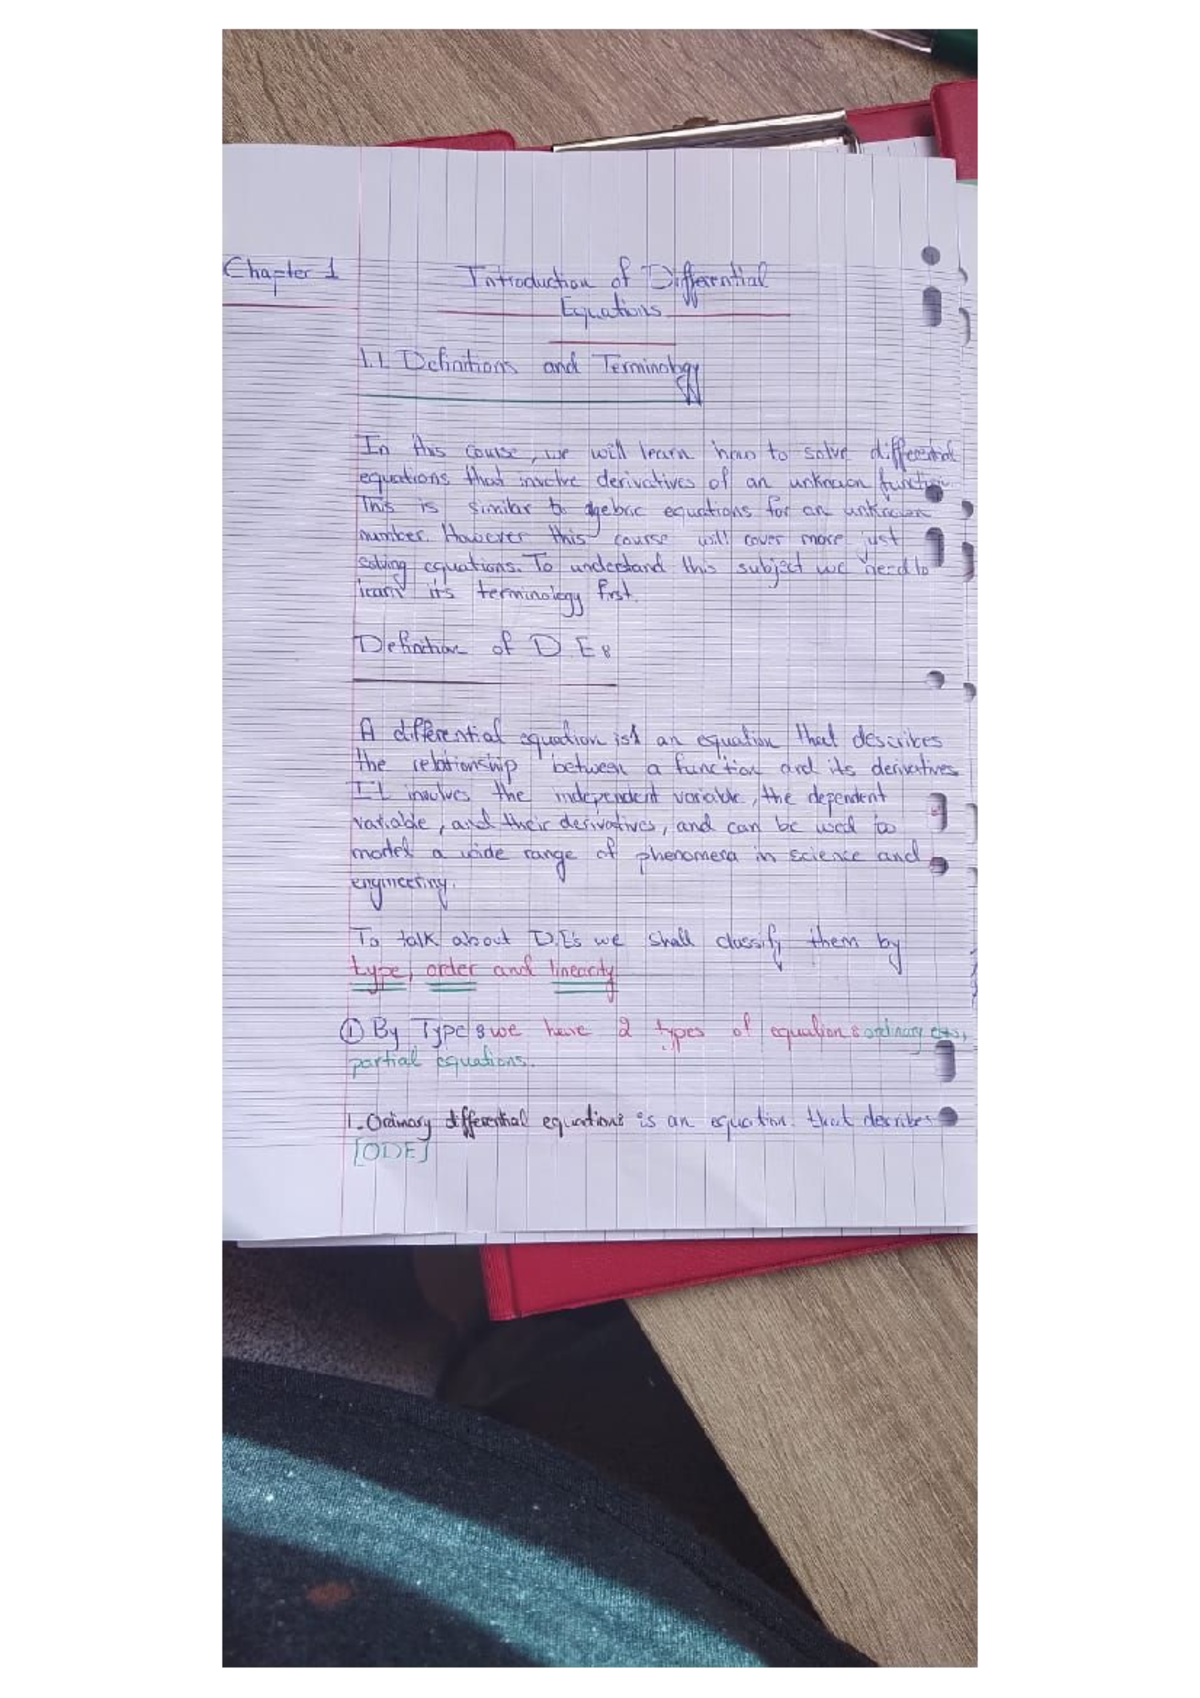 Chapter 1
Introduction of Differential
Equations
1.1. Definitions and Terminology
In this course, we will learn how to solve differential
equations that involve derivatives of an unknown function.
This is similar to algebric equations for an unknown
number. However this course will cover more just
solving equations. To understand this subject we need to
learn its terminology first.
Definition of D.E:
A differential equation is an equation that describes
the relationship between a function and its derivatives.
It involves the independent variable, the dependent
variable, and their derivatives, and can be used to
model a wide range of phenomena in science and
engineering.
To talk about D.E's we shall classify them by
type, order and linearity
① By Type: we have 2 types of equations: ordinary
partial equations.
1. Ordinary differential equations is an equation that describes
[ODE]